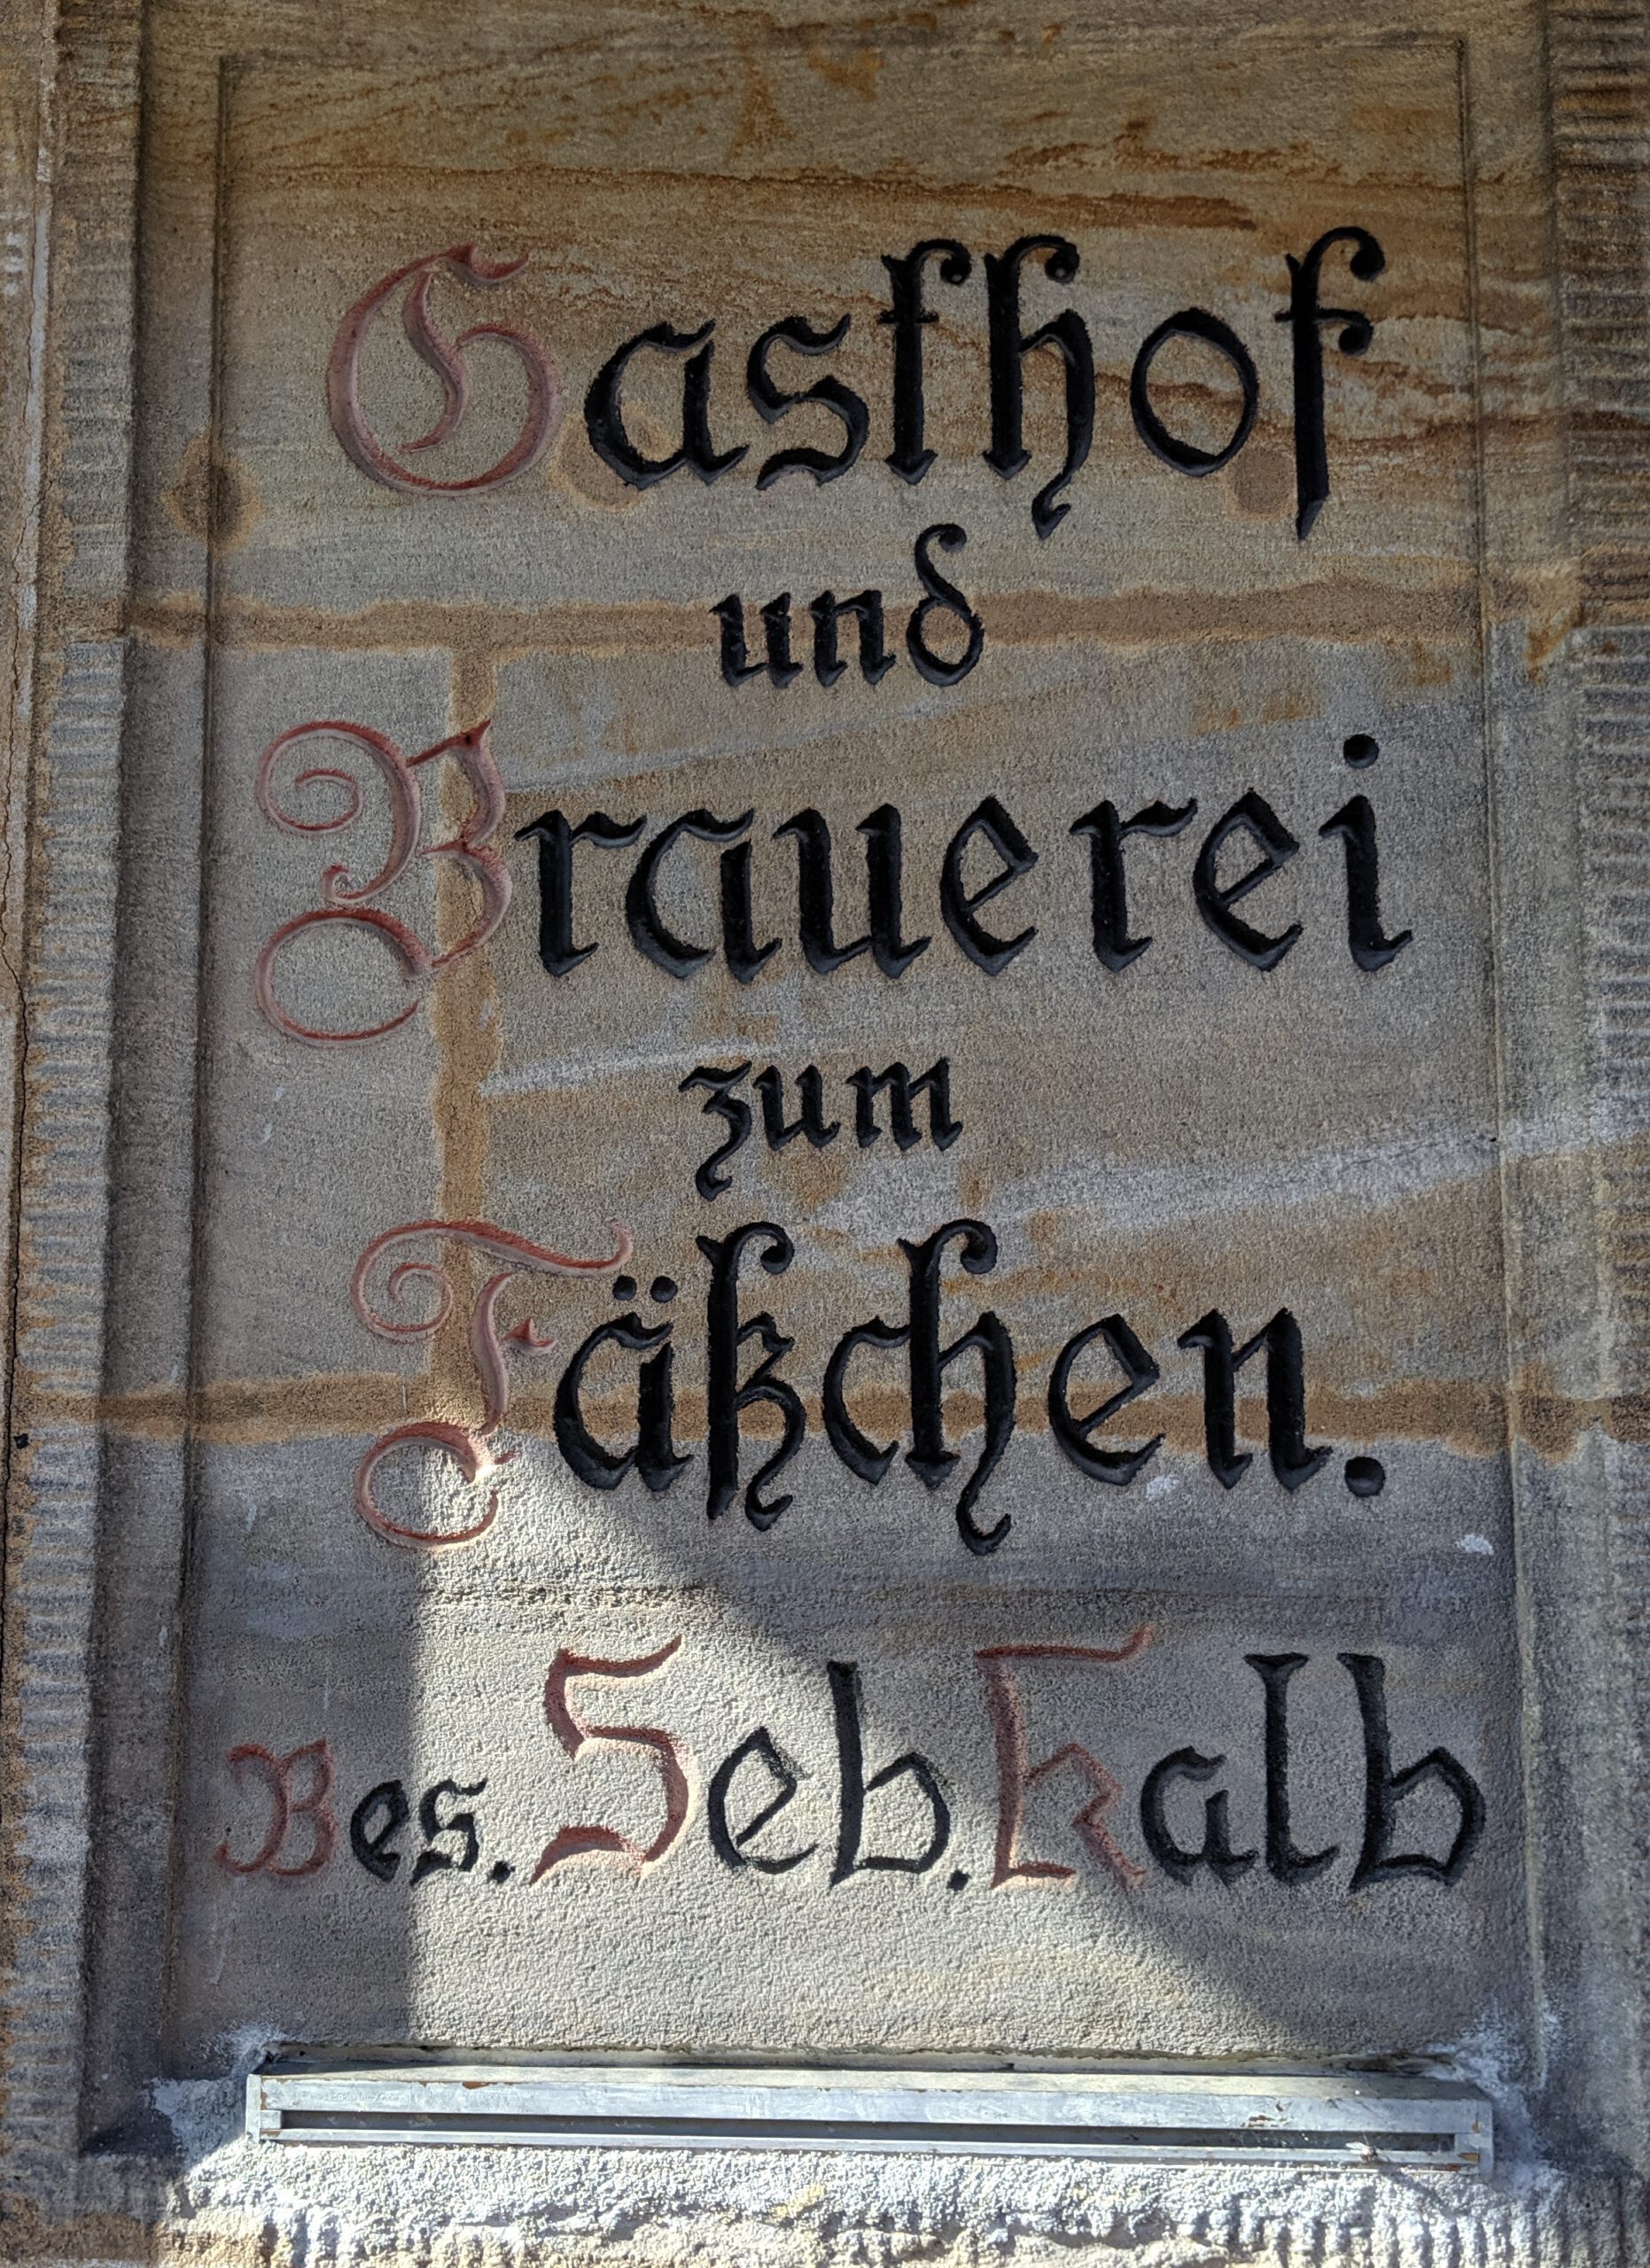 Gasthof
und
Brauerei
zum
Fäßchen.
Bes. Seb. Kalb